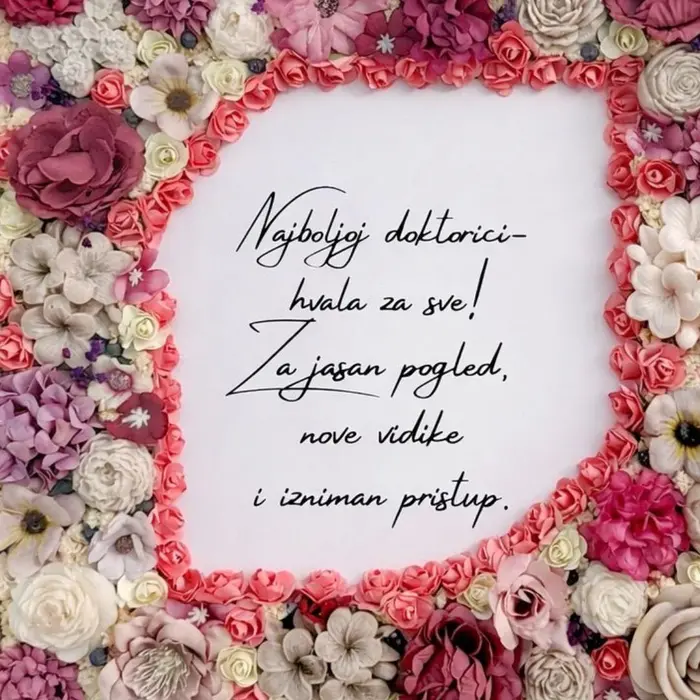 Najboljoj doktorici-
hvala za sve!
Za jasan pogled,
nove vidike
i izniman pristup.